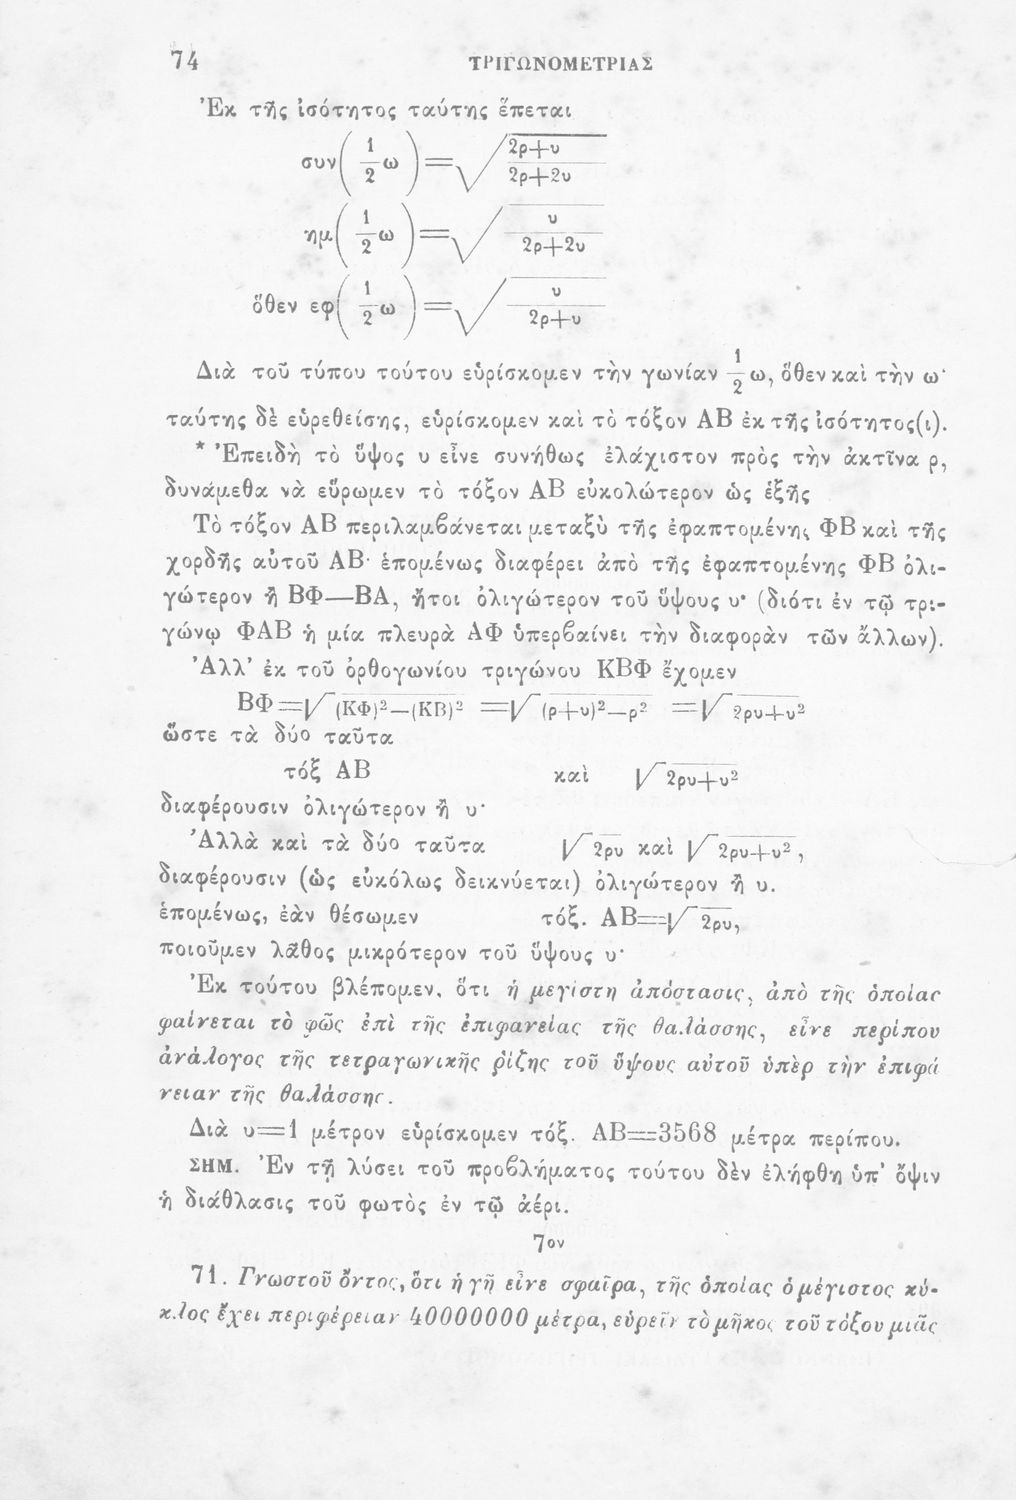 74 ΤΡΙΓΩΝΟΜΕΤΡΙΑΣ
Ἐκ τῆς ἰσότητος ταύτης ἕπεται
συν(1/2 ω)=√((2ρ+υ)/(2ρ+2υ))
ημ(1/2 ω)=√(υ/(2ρ+2υ))
ὅθεν εφ(1/2 ω)=√(υ/(2ρ+υ))
Διὰ τοῦ τύπου τούτου εὑρίσκομεν τὴν γωνίαν 1/2 ω, ὅθεν καὶ τὴν ω·
ταύτης δὲ εὑρεθείσης, εὑρίσκομεν καὶ τὸ τόξον ΑΒ ἐκ τῆς ἰσότητος(ι).
* Ἐπειδὴ τὸ ὕψος υ εἶνε συνήθως ἐλάχιστον πρὸς τὴν ἀκτῖνα ρ,
δυνάμεθα νὰ εὕρωμεν τὸ τόξον ΑΒ εὐκολώτερον ὡς ἑξῆς
Τὸ τόξον ΑΒ περιλαμβάνεται μεταξὺ τῆς ἐφαπτομένης ΦΒ καὶ τῆς
χορδῆς αὐτοῦ ΑΒ· ἑπομένως διαφέρει ἀπὸ τῆς ἐφαπτομένης ΦΒ ὀλι-
γώτερον ἢ ΒΦ—ΒΑ, ἤτοι ὀλιγώτερον τοῦ ὕψους υ· (διότι ἐν τῷ τρι-
γώνῳ ΦΑΒ ἡ μία πλευρὰ ΑΦ ὑπερβαίνει τὴν διαφορὰν τῶν ἄλλων).
Ἀλλ' ἐκ τοῦ ὀρθογωνίου τριγώνου ΚΒΦ ἔχομεν
ΒΦ=√(ΚΦ)²—(ΚΒ)² =√(ρ+υ)²—ρ² =√2ρυ+υ²
ὥστε τὰ δύο ταῦτα
τόξ ΑΒ καὶ √2ρυ+υ²
διαφέρουσιν ὀλιγώτερον ἢ υ·
Ἀλλὰ καὶ τὰ δύο ταῦτα √2ρυ καὶ √2ρυ+υ²,
διαφέρουσιν (ὡς εὐκόλως δεικνύεται) ὀλιγώτερον ἢ υ.
ἑπομένως, ἐὰν θέσωμεν τόξ. ΑΒ=√2ρυ,
ποιοῦμεν λᾶθος μικρότερον τοῦ ὕψους υ·
Ἐκ τούτου βλέπομεν, ὅτι ἡ μεγίστη ἀπόστασις, ἀπὸ τῆς ὁποίας
φαίνεται τὸ φῶς ἐπὶ τῆς ἐπιφανείας τῆς θαλάσσης, εἶνε περίπου
ἀνάλογος τῆς τετραγωνικῆς ῥίζης τοῦ ὕψους αὐτοῦ ὑπὲρ τὴν ἐπιφά
νειαν τῆς θαλάσσης.
Διὰ υ=1 μέτρον εὑρίσκομεν τόξ. ΑΒ=3568 μέτρα περίπου.
ΣΗΜ. Ἐν τῇ λύσει τοῦ προβλήματος τούτου δὲν ἐλήφθη ὑπ' ὄψιν
ἡ διάθλασις τοῦ φωτὸς ἐν τῷ ἀέρι.
7ον
71. Γνωστοῦ ὄντος, ὅτι ἡ γῆ εἶνε σφαῖρα, τῆς ὁποίας ὁ μέγιστος κύ-
κλος ἔχει περιφέρειαν 40000000 μέτρα, εὑρεῖν τὸ μῆκος τοῦ τόξου μιᾶς